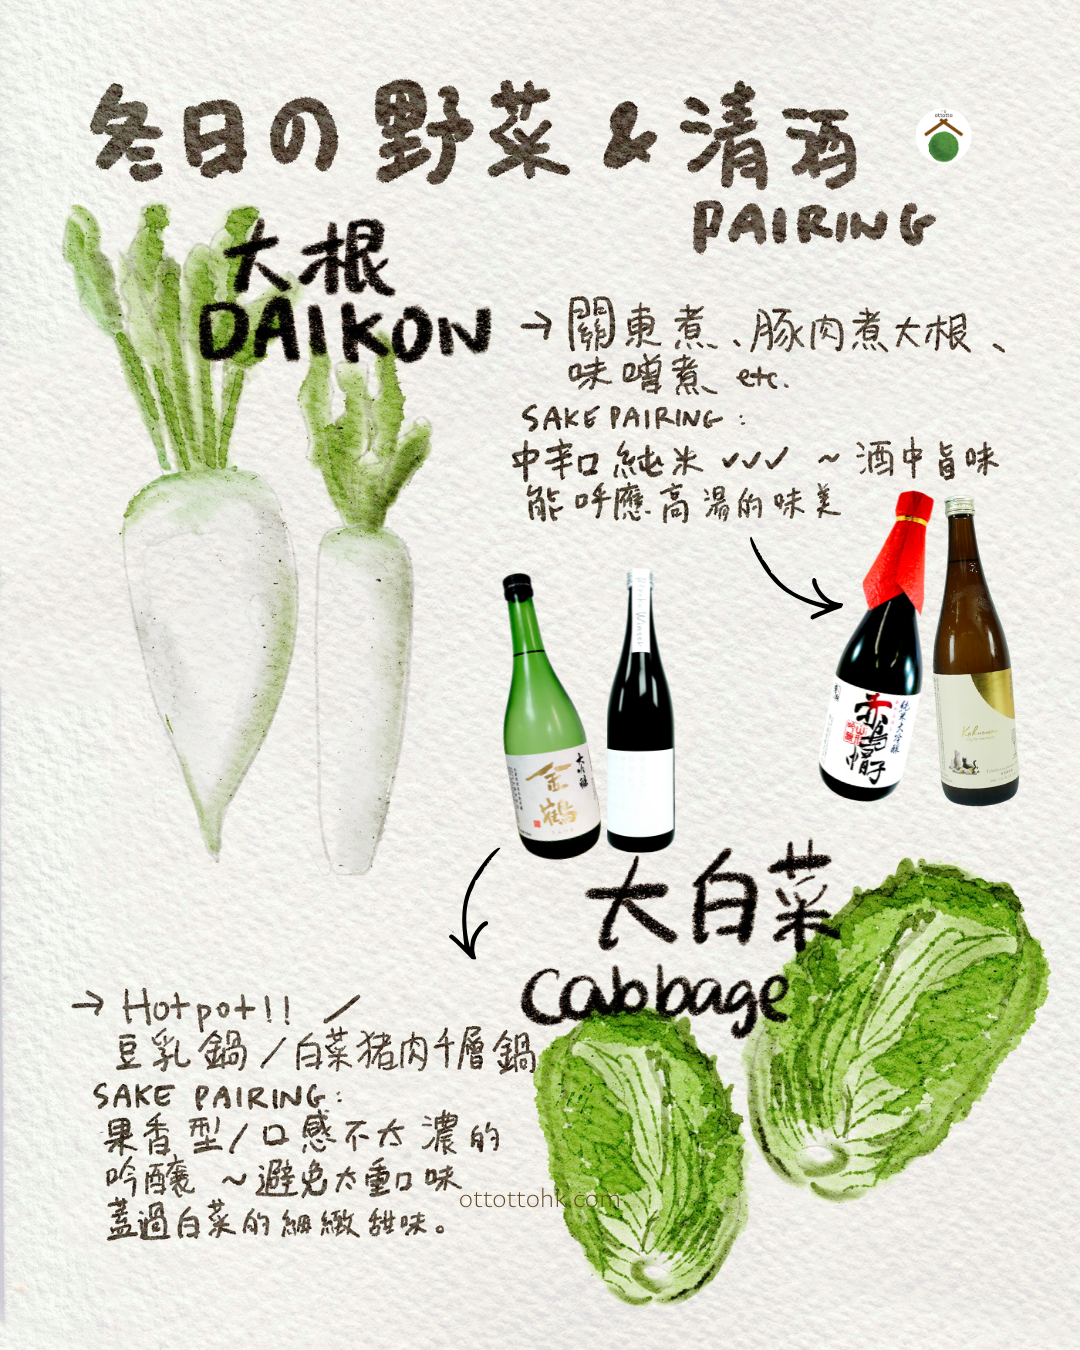 冬日の野菜 & 清酒
PAIRING
ottotto
大根
DAIKON
→ 關東煮、豚肉煮大根、
味噌煮 etc.
SAKE PAIRING :
中辛口純米 ✓✓✓ ~ 酒中旨味
能呼應高湯的味美
純米大吟醸
赤烏帽子
Kakunono
Winter
大吟醸
金鶴
大白菜
Cabbage
→ Hotpot!! /
豆乳鍋 / 白菜猪肉千層鍋
SAKE PAIRING:
果香型/口感不太濃的
吟醸 ~避免太重口味
蓋過白菜的細緻甜味。
ottottohk.com